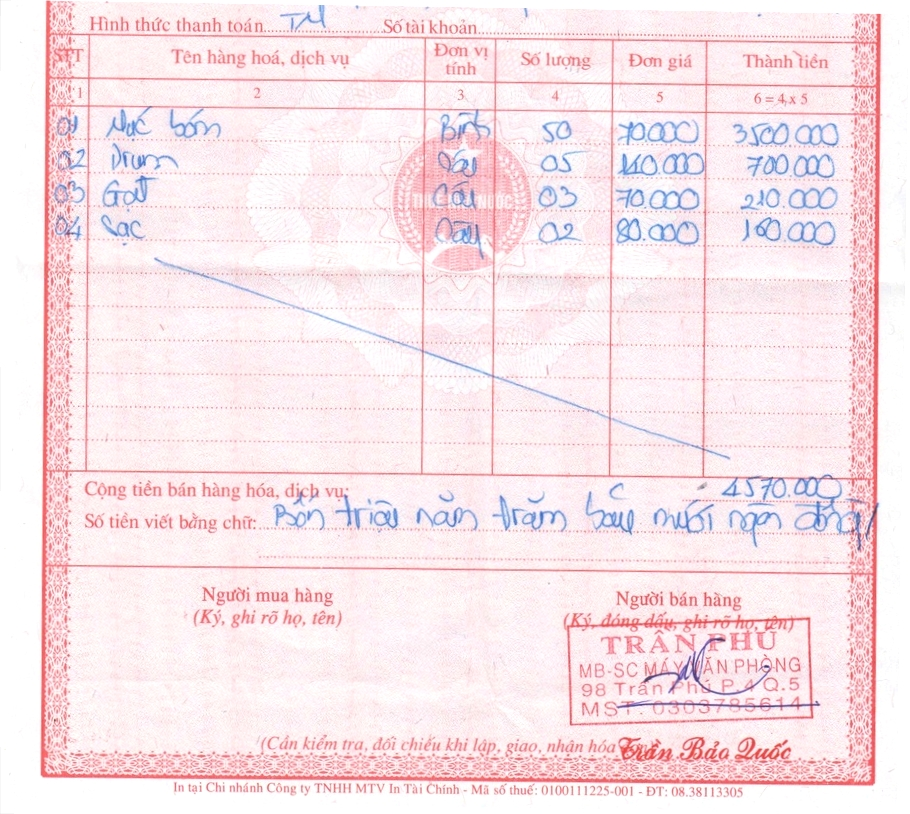 Hình thức thanh toán TM Số tài khoản
STT Tên hàng hoá, dịch vụ Đơn vị tính Số lượng Đơn giá Thành tiền
1 2 3 4 5 6 = 4 x 5
01 Mực bơm Bình 50 70.000 3500.000
02 Drum Cây 05 140.000 700.000
03 Gạt Cây 03 70.000 210.000
04 Sạc Cây 02 80.000 160.000
Cộng tiền bán hàng hóa, dịch vụ: 4570.000
Số tiền viết bằng chữ: Bốn triệu năm trăm bảy mươi ngàn đồng
Người mua hàng Người bán hàng
(Ký, ghi rõ họ, tên) (Ký, đóng dấu, ghi rõ họ, tên)
TRẦN PHÚ
MB-SC MÁY VĂN PHÒNG
98 Trần Phú P.4 Q.5
MST: 0303785614
(Cần kiểm tra, đối chiếu khi lập, giao, nhận hóa Trần Bảo Quốc
In tại Chi nhánh Công ty TNHH MTV In Tài Chính - Mã số thuế: 0100111225-001 - ĐT: 08.38113305